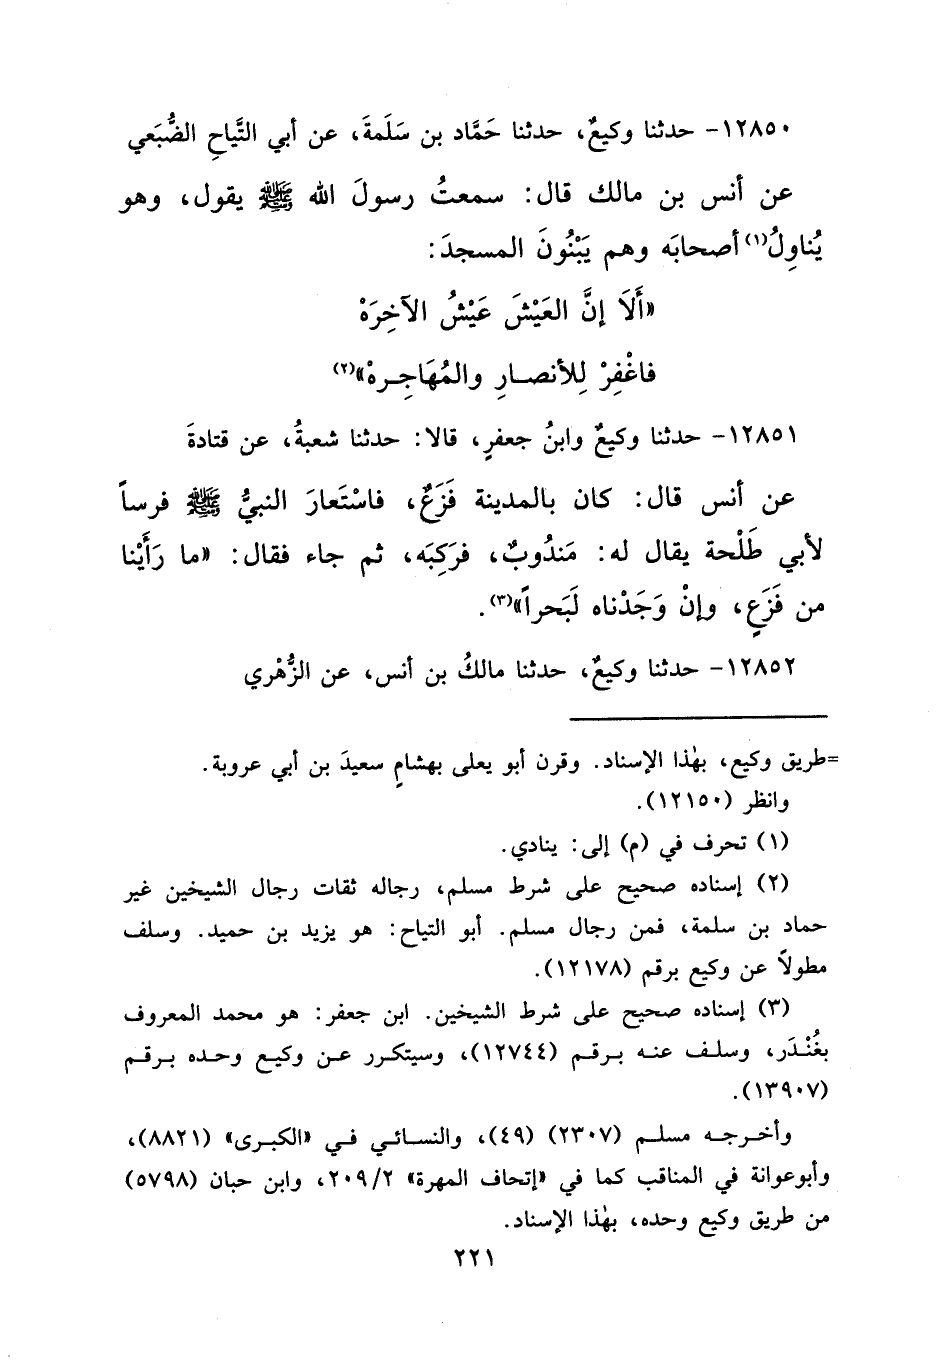 ١٢٨٥٠- حدثنا وكيعٌ، حدثنا حَمَّاد بن سَلَمةَ، عن أبي التَّيَّاحِ الضُّبَعي
عن أنس بن مالك قال: سمعتُ رسولَ الله ﷺ يقول، وهو
يُناوِلُ(١) أصحابَه وهم يَبْنُونَ المسجدَ:
«أَلَا إنَّ العَيْشَ عَيْشُ الآخِرَهْ
فاغْفِرْ لِلأنصارِ والمُهَاجِرهْ»(٢)
١٢٨٥١- حدثنا وكيعٌ وابنُ جعفرٍ، قالا: حدثنا شعبةُ، عن قتادةَ
عن أنس قال: كان بالمدينة فَزَعٌ، فاسْتَعارَ النبيُّ ﷺ فرساً
لأبي طَلْحة يقال له: مَندُوبٌ، فرَكِبَه، ثم جاء فقال: «ما رَأَيْنا
من فَزَعٍ، وإنْ وَجَدْناه لَبَحراً»(٣).
١٢٨٥٢- حدثنا وكيعٌ، حدثنا مالكُ بن أنس، عن الزُّهْري
=طريق وكيع، بهٰذا الإسناد. وقرن أبو يعلى بهشامٍ سعيدَ بن أبي عروبة.
وانظر (١٢١٥٠).
(١) تحرف في (م) إلى: ينادي.
(٢) إسناده صحيح على شرط مسلم، رجاله ثقات رجال الشيخين غير
حماد بن سلمة، فمن رجال مسلم. أبو التياح: هو يزيد بن حميد. وسلف
مطولاً عن وكيع برقم (١٢١٧٨).
(٣) إسناده صحيح على شرط الشيخين. ابن جعفر: هو محمد المعروف
بغُنْدَر، وسلف عنه برقم (١٢٧٤٤)، وسيتكرر عن وكيع وحده برقم
(١٣٩٠٧).
وأخرجه مسلم (٢٣٠٧) (٤٩)، والنسائي في «الكبرى» (٨٨٢١)،
وأبوعوانة في المناقب كما في «إتحاف المهرة» ٢٠٩/٢، وابن حبان (٥٧٩٨)
من طريق وكيع وحده، بهٰذا الإسناد.
٢٢١